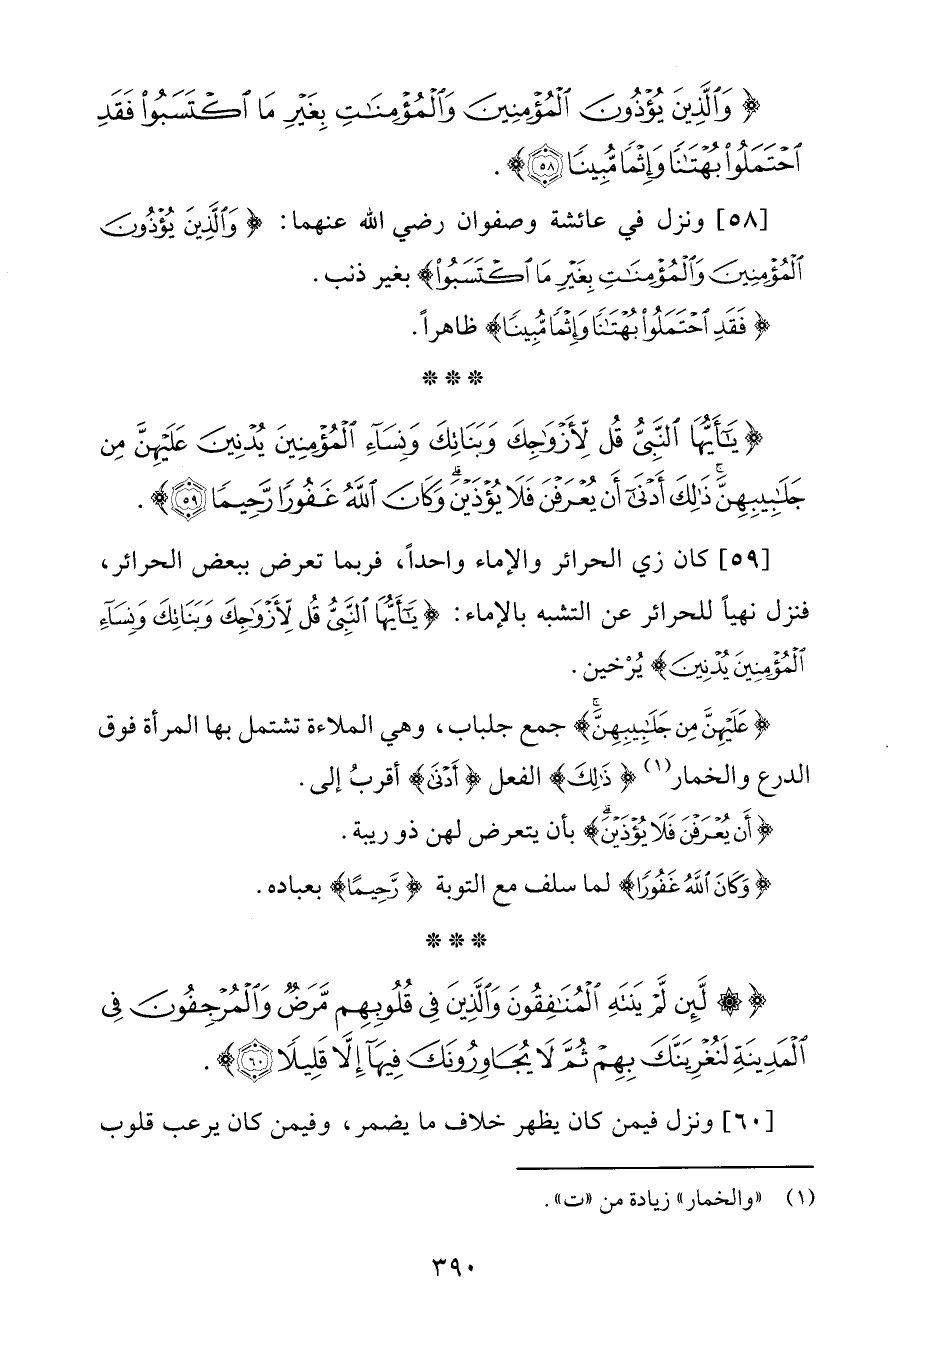 ﴿ وَٱلَّذِينَ يُؤْذُونَ ٱلْمُؤْمِنِينَ وَٱلْمُؤْمِنَٰتِ بِغَيْرِ مَا ٱكْتَسَبُوا۟ فَقَدِ
ٱحْتَمَلُوا۟ بُهْتَٰنًا وَإِثْمًا مُّبِينًا ٥٨ ﴾ .
[٥٨] ونزل في عائشة وصفوان رضي الله عنهما: ﴿ وَٱلَّذِينَ يُؤْذُونَ
ٱلْمُؤْمِنِينَ وَٱلْمُؤْمِنَٰتِ بِغَيْرِ مَا ٱكْتَسَبُوا۟﴾ بغير ذنب.
﴿ فَقَدِ ٱحْتَمَلُوا۟ بُهْتَٰنًا وَإِثْمًا مُّبِينًا﴾ ظاهراً.
* * *
﴿ يَٰٓأَيُّهَا ٱلنَّبِىُّ قُل لِّأَزْوَٰجِكَ وَبَنَاتِكَ وَنِسَآءِ ٱلْمُؤْمِنِينَ يُدْنِينَ عَلَيْهِنَّ مِن
جَلَٰبِيبِهِنَّ ۚ ذَٰلِكَ أَدْنَىٰٓ أَن يُعْرَفْنَ فَلَا يُؤْذَيْنَ ۗ وَكَانَ ٱللَّهُ غَفُورًا رَّحِيمًا ٥٩ ﴾ .
[٥٩] كان زي الحرائر والإماء واحداً، فربما تعرض ببعض الحرائر،
فنزل نهياً للحرائر عن التشبه بالإماء: ﴿ يَٰٓأَيُّهَا ٱلنَّبِىُّ قُل لِّأَزْوَٰجِكَ وَبَنَاتِكَ وَنِسَآءِ
ٱلْمُؤْمِنِينَ يُدْنِينَ﴾ يُرْخين.
﴿ عَلَيْهِنَّ مِن جَلَٰبِيبِهِنَّ ۚ﴾ جمع جلباب، وهي الملاءة تشتمل بها المرأة فوق
الدرع والخمار(١) ﴿ ذَٰلِكَ﴾ الفعل ﴿ أَدْنَىٰ﴾ أقربُ إلى.
﴿ أَن يُعْرَفْنَ فَلَا يُؤْذَيْنَ ۗ﴾ بأن يتعرض لهن ذو ريبة.
﴿ وَكَانَ ٱللَّهُ غَفُورًا﴾ لما سلف مع التوبة ﴿ رَّحِيمًا﴾ بعباده.
* * *
﴿ ۞ لَّئِن لَّمْ يَنتَهِ ٱلْمُنَٰفِقُونَ وَٱلَّذِينَ فِى قُلُوبِهِم مَّرَضٌ وَٱلْمُرْجِفُونَ فِى
ٱلْمَدِينَةِ لَنُغْرِيَنَّكَ بِهِمْ ثُمَّ لَا يُجَاوِرُونَكَ فِيهَآ إِلَّا قَلِيلًا ٦٠ ﴾ .
[٦٠] ونزل فيمن كان يظهر خلاف ما يضمر، وفيمن كان يرعب قلوب
(١) «والخمار» زيادة من «ت».
٣٩٠